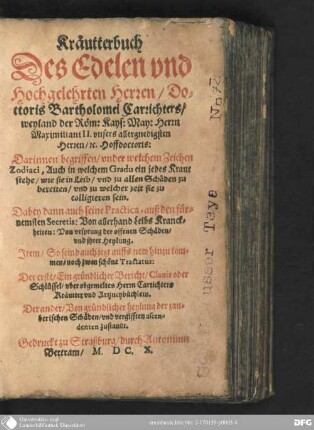 Kräutterbuch
Des Edelen vnd
Hochgelehrten Herren / Do-
ctoris Bartholomei Carrichters /
weyland der Röm: Kays: May: Herrn
Maximiliani II. vnsers allergnedigsten
Herren / ꝛc. Hoffdoctoris:
Darinnen begriffen / vnder welchem Zeichen
Zodiaci, Auch in welchem Gradu ein jedes Kraut
stehe / wie sie in Leib / vnd zu allen Schäden zu
bereiten / vnd zu welcher zeit sie zu
colligieren sein.
Dabey dann auch seine Practica, auß den für-
nemsten Secretis: Von allerhand Leibs Kranck-
heiten: Von vrsprung der offenen Schäden /
vnd jhrer Heylung.
Item / So seind auch jetzt auffs new hinzu kom-
men / noch zwen schöne Tractatus:
Der erst / Ein gründlicher Bericht / Clauis oder
Schlüssel / vber obgemeltes Herrn Carrichters
Kräuter vnd Artzneybüchlein.
Der ander / Von gründlicher heylung der zau-
berischen Schäden / vnd vergifften
zustandt.
Gedruckt zu Straßburg / durch Antonium
Bertram / M. DC. X.